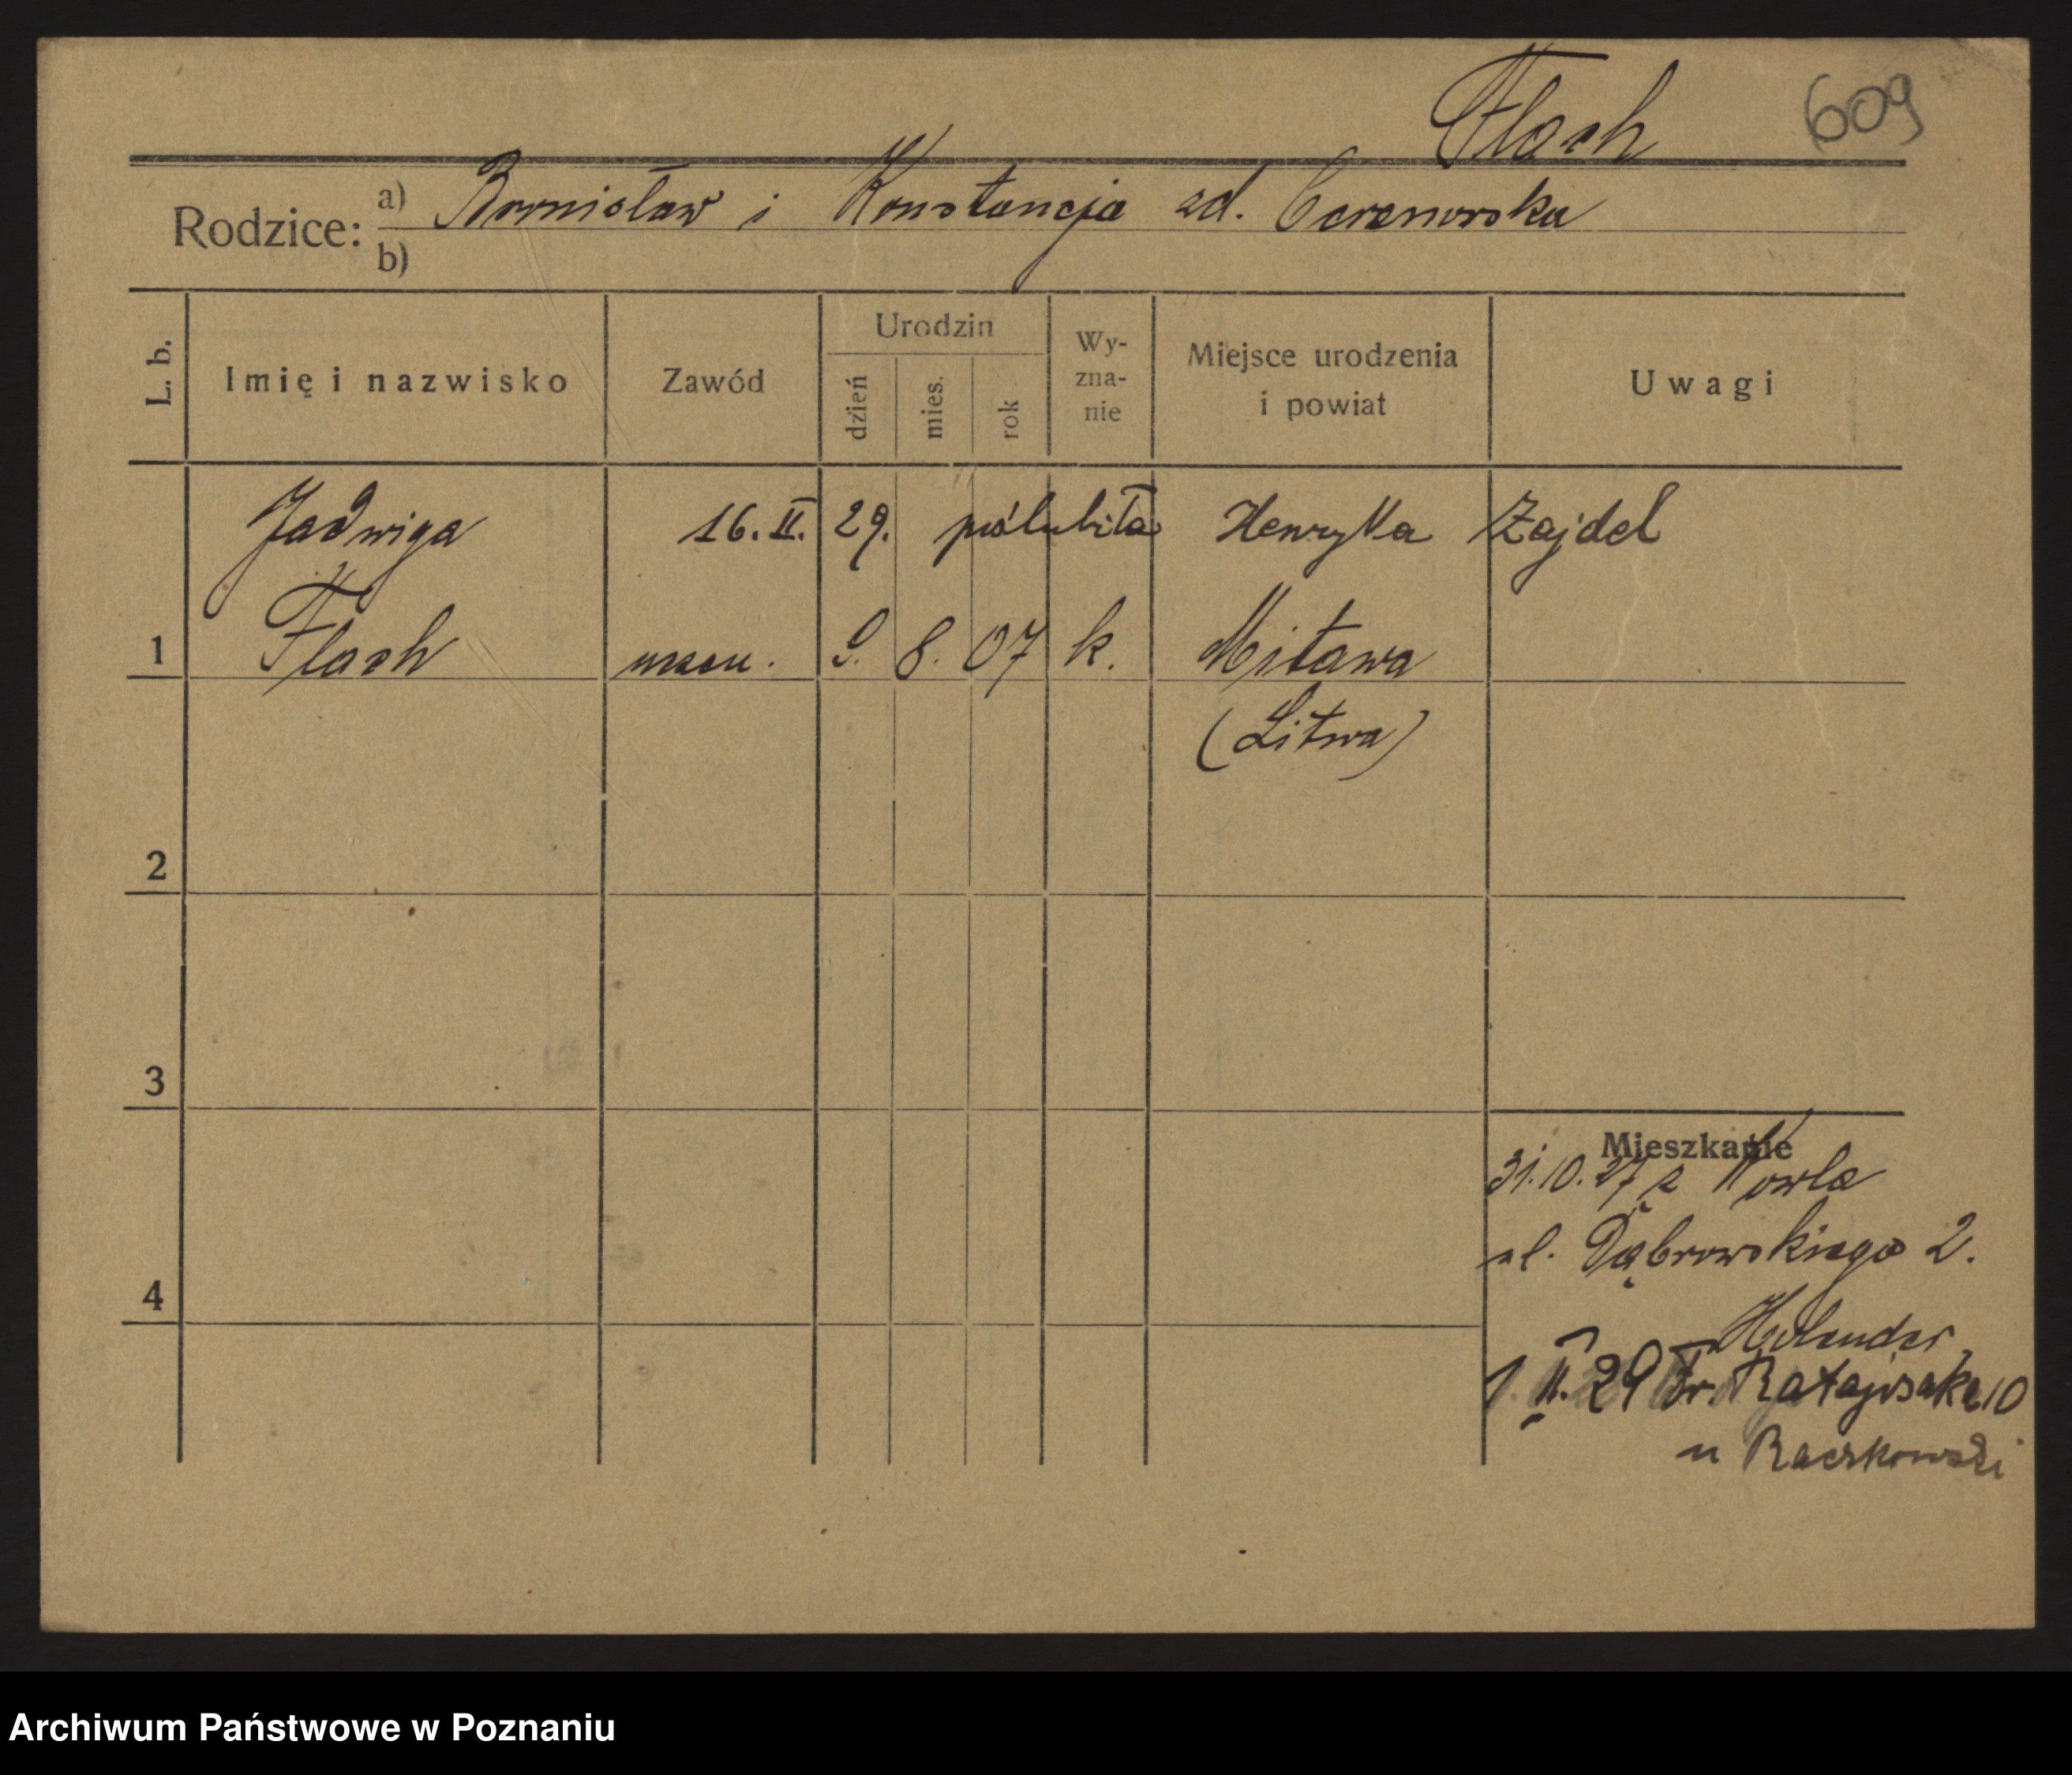 Flach 609
Rodzice: a) Bronisław i Konstancja zd.
b)
L. b. Imię i nazwisko Zawód Urodzin dzień mies. rok Wy-zna-nie Miejsce urodzenia i powiat Uwagi
Jadwiga 16. II. 29. poślubiła Henryka Zajdel
1 Flach 9. 8. 07 k. Mitawa
(Litwa)
2
3
Mieszkanie
31.10.27 z Kowla
ul. Dąbrowskiego 2.
4
Holender
1. II. 29 Fr. Ratajczaka 10
u Raczkowski
Archiwum Państwowe w Poznaniu